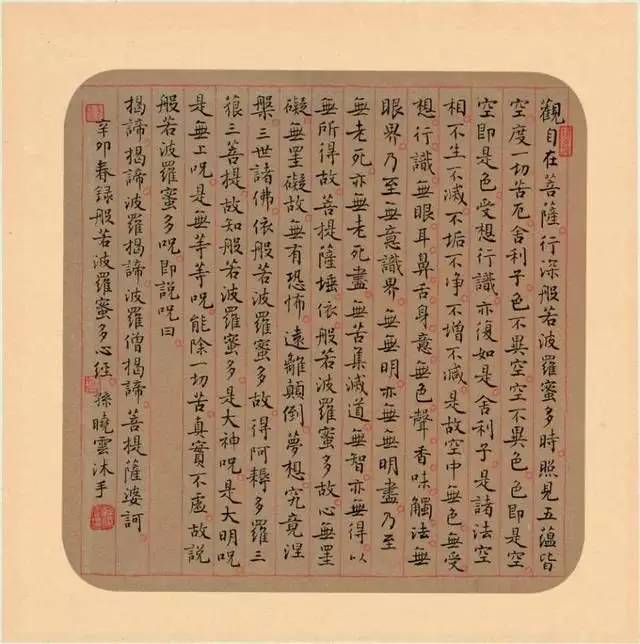 觀自在菩薩行深般若波羅蜜多時照見五蘊皆
空度一切苦厄舍利子色不異空空不異色色即是空
空即是色受想行識亦復如是舍利子是諸法空
相不生不滅不垢不净不增不減是故空中無色無受
想行識無眼耳鼻舌身意無色聲香味觸法無
眼界乃至無意識界無無明亦無無明盡乃至
無老死亦無老死盡無苦集滅道無智亦無得以
無所得故菩提薩埵依般若波羅蜜多故心無罣
礙無罣礙故無有恐怖遠離顛倒夢想究竟涅
槃三世諸佛依般若波羅蜜多故得阿耨多羅三
藐三菩提故知般若波羅蜜多是大神呪是大明呪
是無上呪是無等等呪能除一切苦真實不虛故說
般若波羅蜜多呪即說呪曰
揭諦揭諦波羅揭諦波羅僧揭諦菩提薩婆訶
辛卯春録般若波羅蜜多心經孫曉雲沐手